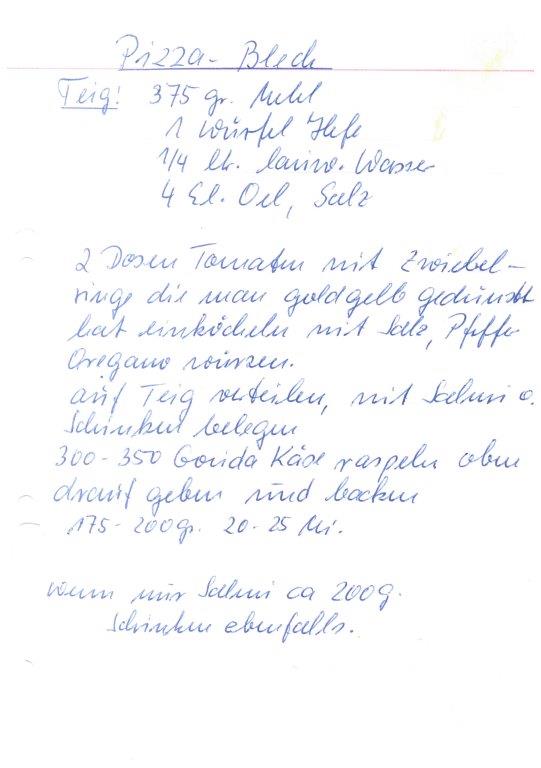 Pizza-Blech
Teig: 375 gr. Mehl
1 Würfel Hefe
1/4 ltr. lauw. Wasser
4 El. Oel, Salz
2 Dosen Tomaten mit Zwiebel-
ringe die man goldgelb gedünstet
hat einköcheln mit Salz, Pfeffer
Oregano würzen.
auf Teig verteilen, mit Salami o.
Schinken belegen
300-350 Gouda Käse raspeln oben
drauf geben und backen
175-200gr. 20-25 Mi.
wenn nur Salami ca 200g.
Schinken ebenfalls.